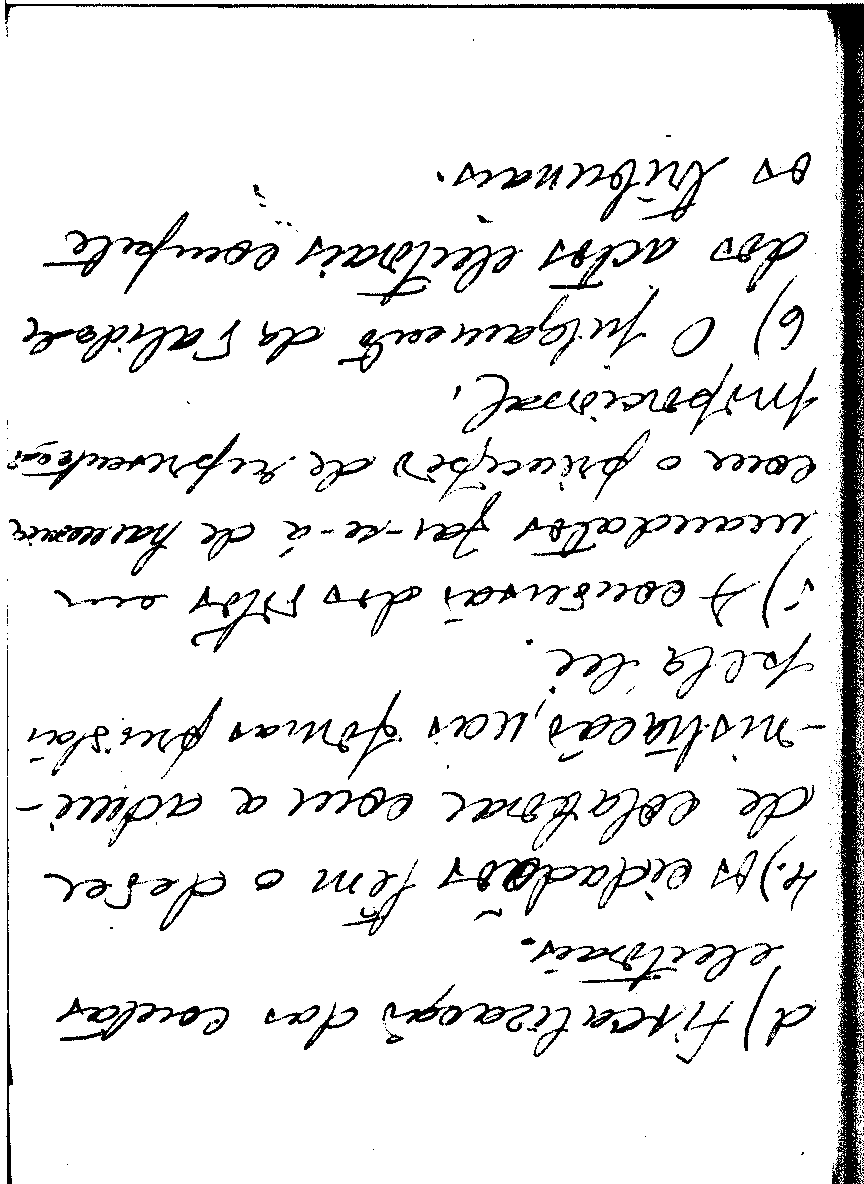 d) Fiscalização das contas
eleitorais.
4.) Os cidadãos têm o dever
de colaborar com a admi-
-nistração, nas formas previstas
pela lei.
5) A conversão dos votos em
mandatos far-se-á de harmonia
com o princípio de representação
proporcional.
6) O julgamento da validade
dos actos eleitorais compete
os tribunais.